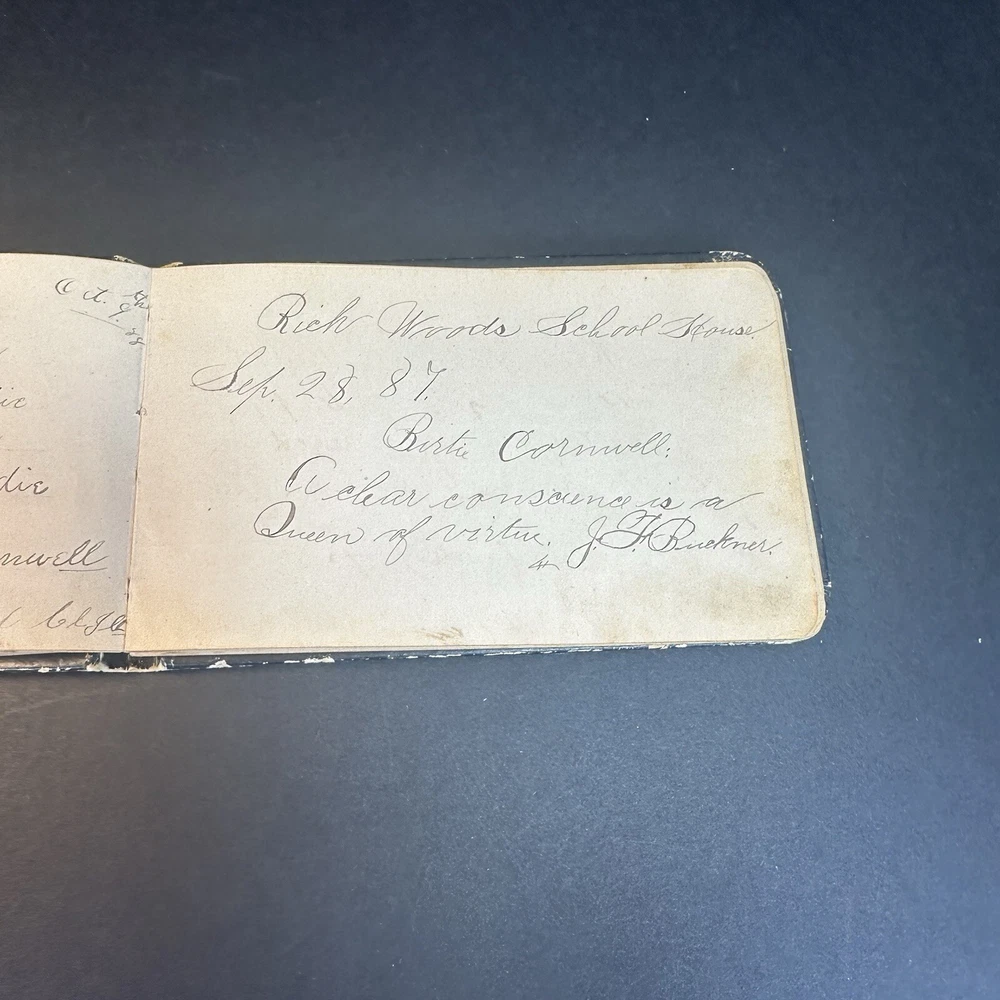 Oct. 9th
88
ic
die
nwell
Rich Woods School House.
Sep. 28, 87.
Birtie Cornwell:
A clear conscience is a
Queen of virtue. J. F. Buckner.